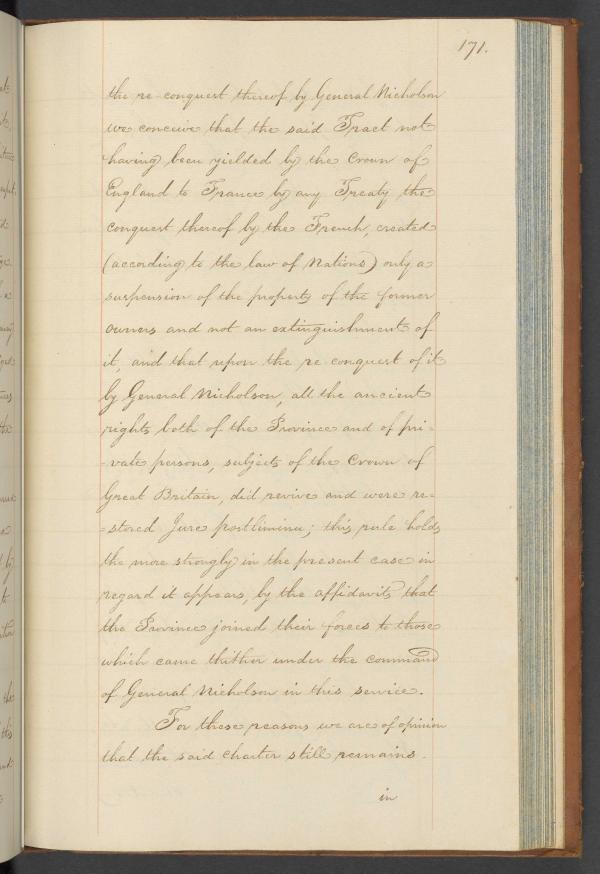 171.
the re conquest thereof by General Nicholson
we conceive that the said Tract not
having been yielded by the Crown of
England to France by any Treaty the
conquest thereof by the French, created
(according to the law of Nations) only a
suspension of the property of the former
owners and not an extinguishment of
it, and that upon the re conquest of it
by General Nicholson, all the ancient
rights both of the Province and of pri-
-vate persons, subjects of the Crown of
Great Britain, did revive and were re-
-stored Jure postliminii; this rule holds
the more strongly in the present case in
regard it appears, by the affidavits that
the Province joined their forces to those
which came thither under the command
of General Nicholson in this service.
For these reasons we are of opinion
that the said Charter still remains.
in